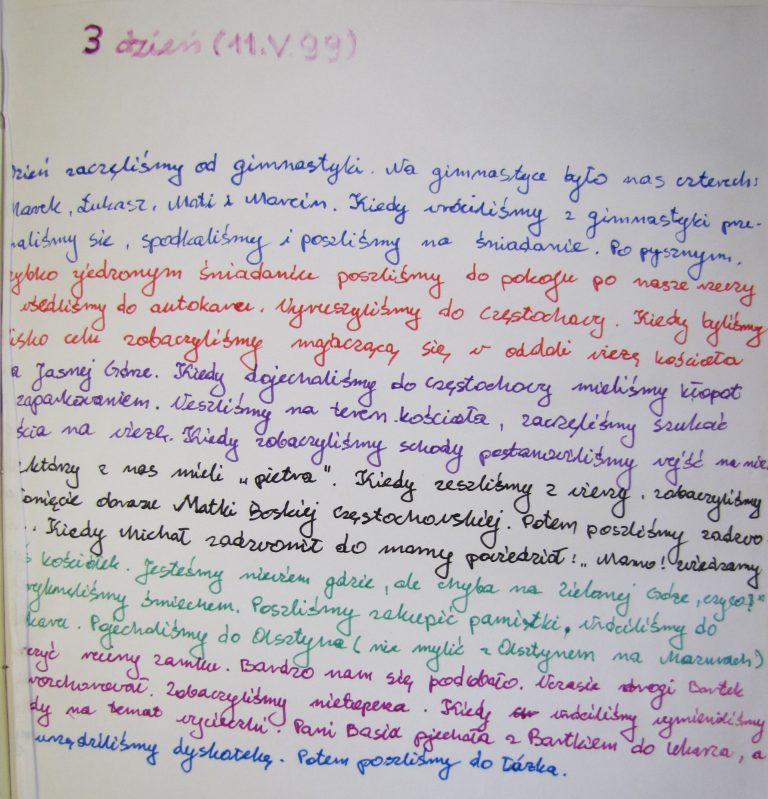 3 dzień (11.V.99)
dzień zaczęliśmy od gimnastyki. Na gimnastyce było nas czterech:
Marek, Łukasz, Mati i Marcin. Kiedy wróciliśmy z gimnastyki prze-
haliśmy się, spodkaliśmy i poszliśmy na śniadanie. Po pysznym,
zybko zjedzonym śniadaniu poszliśmy do pokoju po nasze rzeczy
wsedliśmy do autokaru. Wyruszyliśmy do Częstochowy. Kiedy byliśmy
lisko celu zobaczyliśmy majaczącą się w oddali wieżę kościoła
a Jasnej Górze. Kiedy dojechaliśmy do Częstochowy mieliśmy kłopot
zaparkowaniem. Weszliśmy na teren kościoła, zaczęliśmy szukać
ścia na wieżę. Kiedy zobaczyliśmy schody postanowiliśmy wejść na nie.
którzy z nas mieli „pietra”. Kiedy zeszliśmy z wieży, zobaczyliśmy
onięcie obrazu Matki Boskiej Częstochowskiej. Potem poszliśmy zadzwo-
. Kiedy Michał zadzwonił do mamy powiedział: „Mamo! zwiedzamy
ś kościółek. Jesteśmy niewiem gdzie, ale chyba na Zielonej Górze, czyco?”
ryknęliśmy śmiechem. Poszliśmy zakupić pamiątki, wróciliśmy do
karu. Pojechaliśmy do Olsztyna (nie mylić z Olsztynem na Mazurach)
czyć ruiny zamku. Bardzo nam się podobało. Wczasie drogi Bartek
rozchorował. Zobaczyliśmy nietopeża. Kiedy wróciliśmy wymieniliśmy
dy na temat wycieczki. Pani Basia pjechała z Bartkiem do lekarza, a
urządziliśmy dyskotekę. Potem poszliśmy do łóżka.